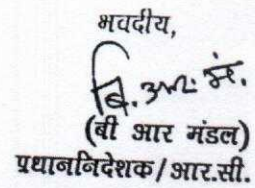 भवदीय,
बि. आर. मं.
(बी आर मंडल)
प्रधाननिदेशक/आर.सी.